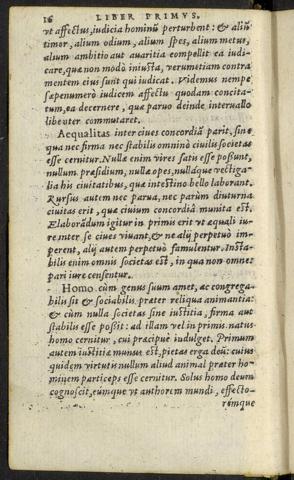 16 LIBER PRIMVS.
vt affectus, iudicia hominũ perturbent: & aliũ
timor, alium odium, alium spes, alium metus,
alium ambitio aut auaritia compellit ea iudi-
care, quæ non modò iniusta, verumetiam contra
mentem eius sunt qui iudicat. Videmus nempe
sæpenumerò iudicem affectu quodam concita-
tum, ea decernere, quæ paruo deinde interuallo
libenter commutaret.
Aequalitas inter ciues concordiã parit, sine
qua nec firma nec stabilis omninò ciuilis societas
esse cernitur. Nullæ enim vires satis esse possunt,
nullum præsidium, nullæ opes, nullaque vectiga-
lia his ciuitatibus, quæ intestino bello laborant.
Rursus autem nec parua, nec parùm diuturna
ciuitas erit, quæ ciuium concordiâ munita est.
Elaborãdum igitur in primis erit vt æquali iu-
re inter se ciues viuant, & ne alij perpetuò im-
perent, alij autem perpetuò famulentur. Insta-
bilis enim omnis societas est, in qua non omnes
pari iure censentur.
Homo cùm genus suum amet, ac congrega-
bilis sit & sociabilis præter reliqua animantia:
& cùm nulla societas sine iustitia, firma aut
stabilis esse possit: ad illam vel in primis natus
homo cernitur, cui præcipuè indulget. Primum
autem iustitiæ munus est, pietas erga deũ: cuius
quidem virtutis nullum aliud animal præter ho-
minem particeps esse cernitur. Solus homo deum
cognoscit, eúmque vt authorem mundi, effecto-
rémque